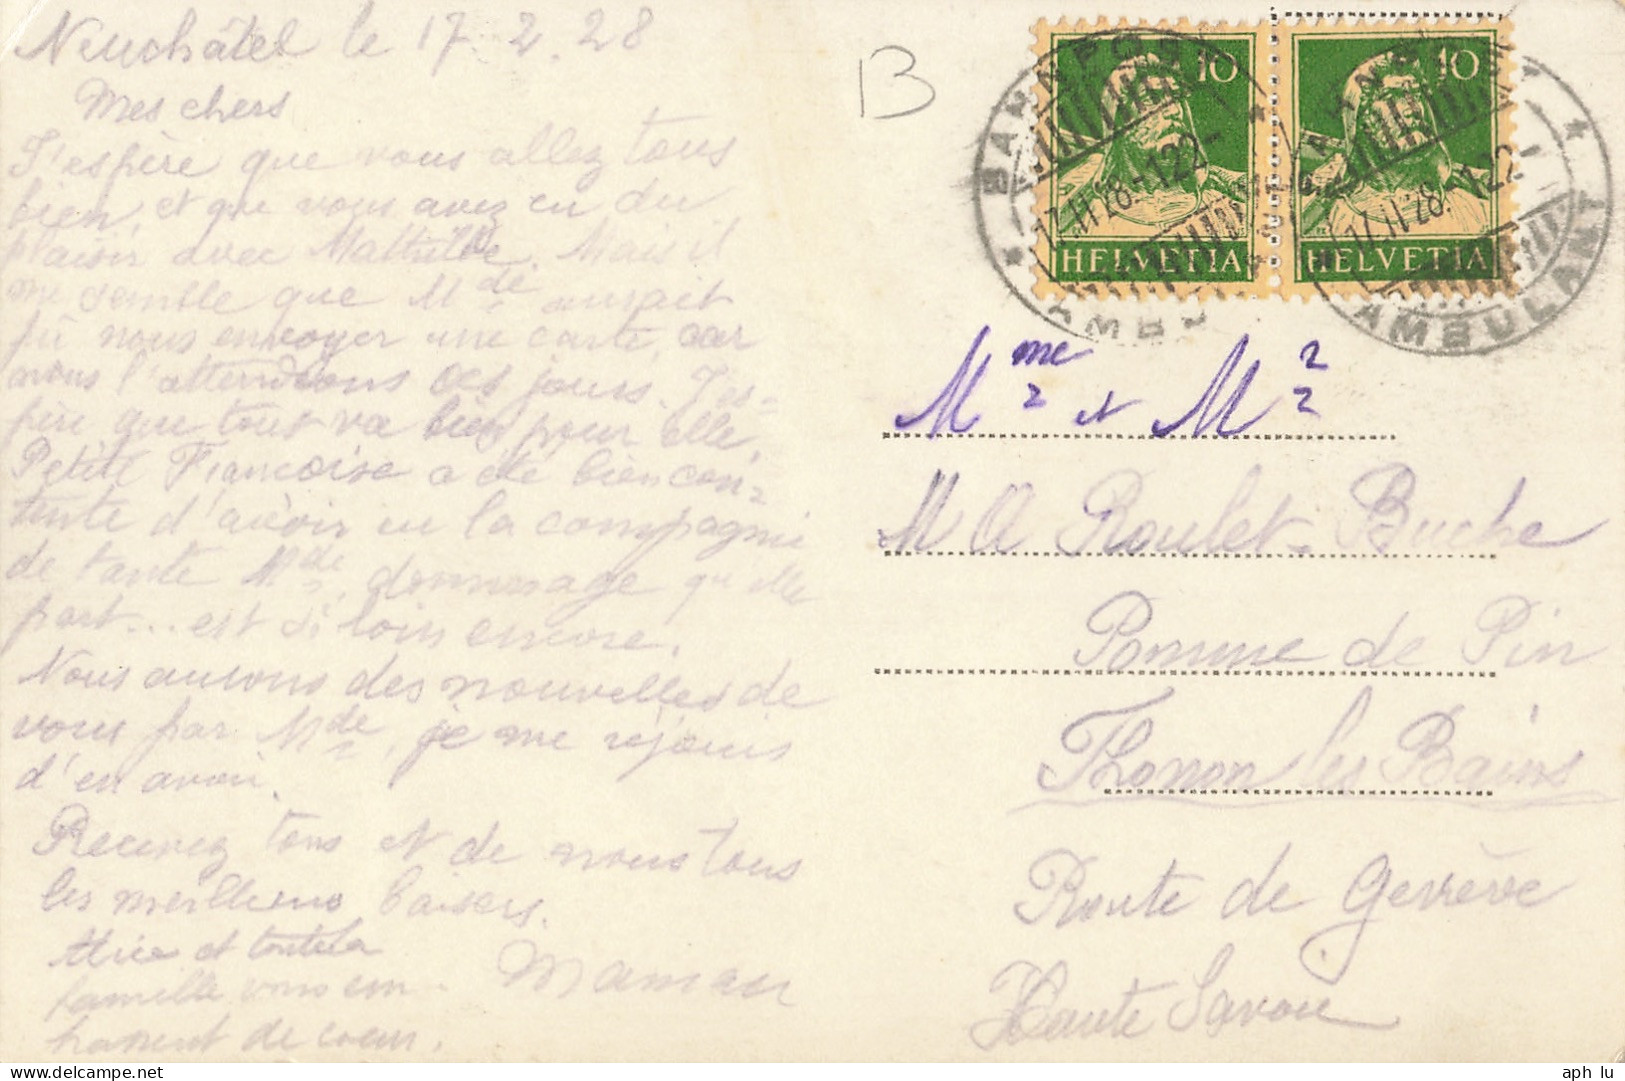 Neuchâtel le 17.2.28
Mes chers
J'espère que vous allez tous
bien, et que vous avez eu du
plaisir avec Mathilde. Mais il
me semble que Mde aurait
pû nous envoyer une carte, car
nous l'attendions ces jours. J'es-
père que tout va bien pour elle.
Petite Françoise a été bien con-
tente d'avoir eu la compagnie
de tante Mde, dommage qu'elle
part... est si loin encore.
Nous aurons des nouvelles de
vous par Mde, je me réjouis
d'en avoir.
Recevez tous et de nous tous
les meilleurs baisers.
Alice et toute la
famille vous em-
brassent de cœur.
Maman
B
10
10
HELVETIA
HELVETIA
BAHNPOST
AMBULANT
17.II.28.-122-
BAHNPOST
AMBULANT
17.II.28.-122-
Mme et Mr
M A Roulet-Buche
Pomme de Pin
Thonon les Bains
Route de Genève
Haute Savoie
aph lu